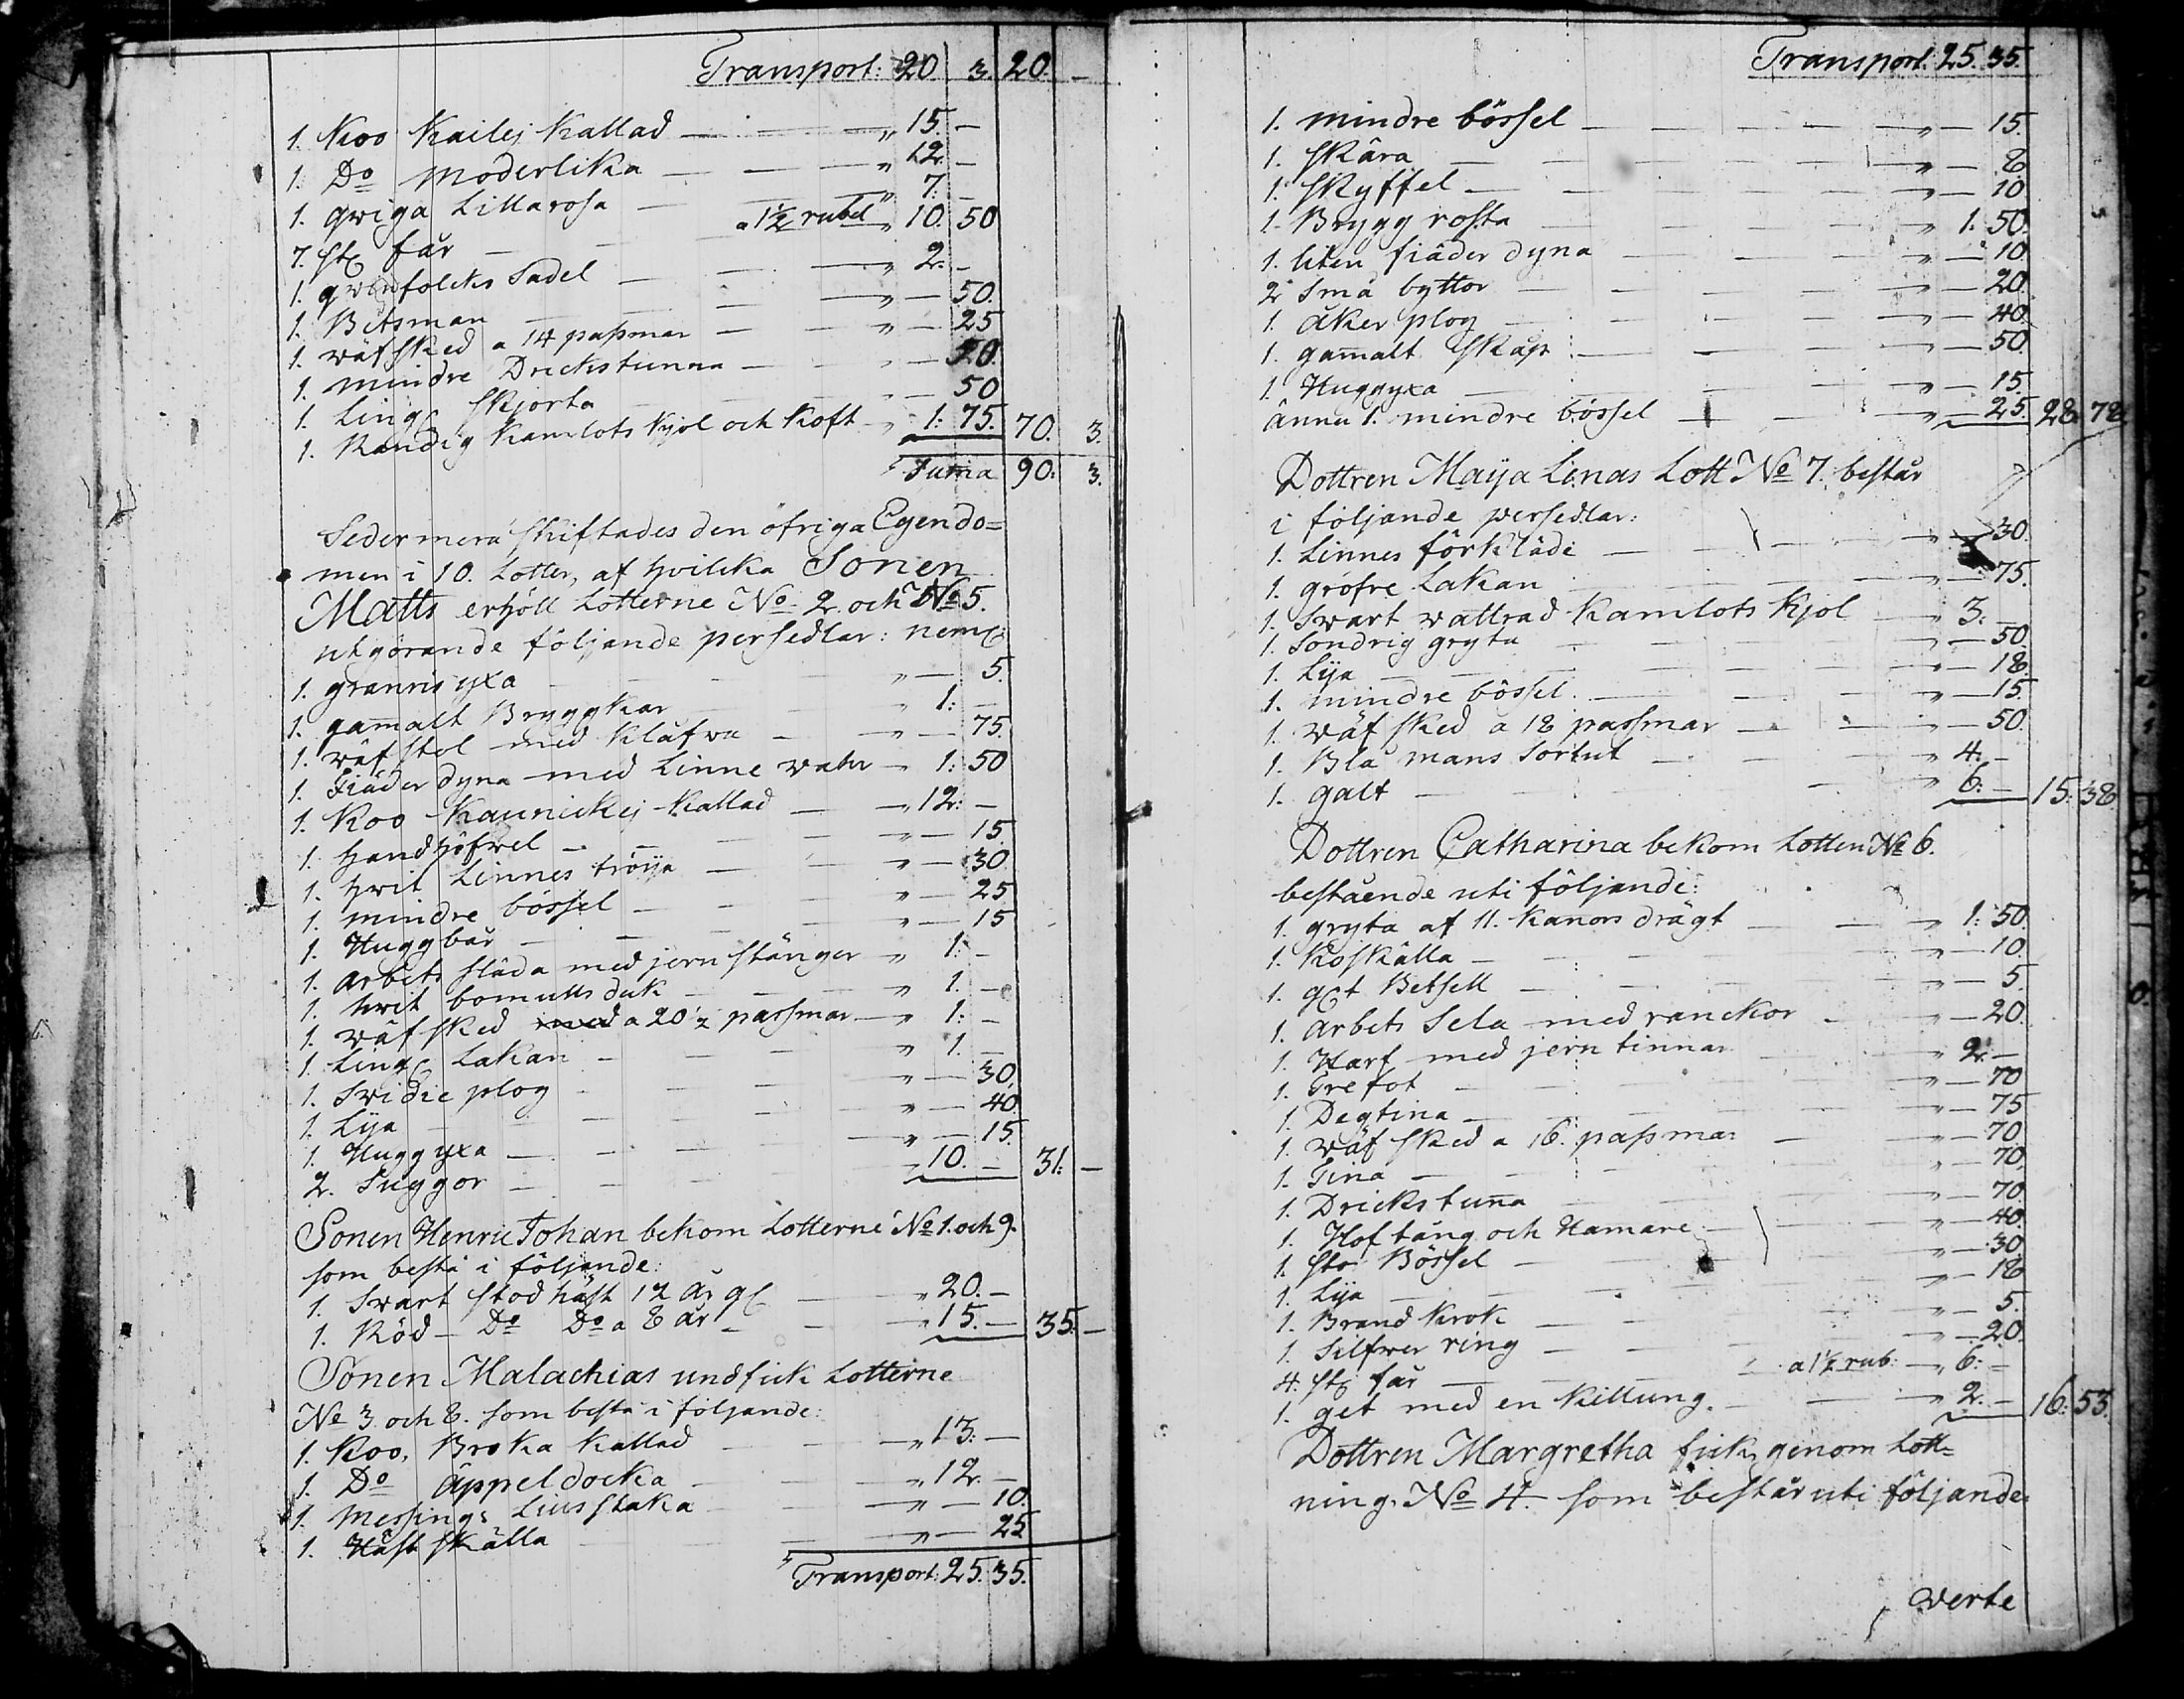 Transport: 20 3. 20. —
1. Koo Kailej Kallad — " 15. —
1. Do Moderlika — " 12. —
1. qviga Lillarosa — " 7. —
7. st får — a 1½ rubel " 10. 50
1. qvinfolcks Sadel — 2. —
1. Bitsman — " — 50.
1. väfsked a 14 passmar — " — 25
1. mindre Drickstunna — 20.
1. Ling skjorta — 50
1. Randig Kamlots kjol och Koft — 1: 75. 70. 3.
Suma 90: 3.
Sedermera skiftades den öfriga Egendo=
men i 10. Lotter, af hvilcka Sonen
Matts erhöll Lotterne No 2. och No 5.
utgörande följande persedlar: neml
1. grannis yxa " — 5.
1. gamalt Bryggkar " 1: —
1. väfstol med Klåfwa — " — 75.
1. Fiäder dyna med Linne vahr — 1: 50
1. Koo Kaunickej Kallad — " 12: —
1. handhöfvel — " — 15
1. hvit Linnes tröija — " — 30
1. mindre bössel — " — 25
1. Huggbår — " — 15
1. arbets släda med jern stänger — " 1: —
1. hvit bomulls duk — " 1. —
1. väfsked med a 20½ passmar — " 1: —
1. Ling Lakan — " 1. —
1. Svidie plog — " — 30.
1. Lija — " — 40
1. Huggyxa — " — 15.
2. Suggor — " 10. — 31: —
Sonen Henric Johan bekom Lotterne No 1. och 9.
som bestå i följande:
1. Svart stod häst 12 år gl — " 20. —
1. Röd — Do Do a 8 år — " 15. — 35. —
Sonen Malachias undfick Lotterne
No 3 och 8. som bestå i följande:
1. Koo, Broka Kallad — " 13: —
1. Do Äppeldocka — " 12. —
1. Messings Liusstaka — " — 10.
1. Häst skälla — " — 25
Transport: 25. 35.
Transport. 25. 35.
1. mindre bössel — " — 15.
1. skära — " — 8
1. skyffel — " — 10
1. Brygg rosta — " 1. 50.
1. liten fiäder dyna — " — 10
2 små byttor — " — 20
1. åker plog — " — 40
1. gamalt skåp — " — 50.
1. Huggyxa — " — 15.
ännu 1. mindre bössel — " — 25. 28. 78
Dottren Maija Lenas Lott No 7. består
i följande persedlar:
1. Linnes förkläde — " — 30.
1. grofre Lakan — " — 75.
1. Svart vattrad Kamlots Kjol — " 3: —
1. Söndrig gryta — " — 50
1. Lija — " — 18
1. mindre bössel. — " — 15
1. väfsked a 18 passmar — " — 50.
1. Blå mans Sortut — " 4. —
1. galt — " 6: — 15: 38
Dottren Catharina bekom Lotten No 6.
bestående uti följande:
1. gryta af 11. Kanors drägt — " 1: 50.
1. Koskälla — " — 10.
1. glt Betsell — " — 5.
1. Arbets Sela med ranckor — " — 20.
1. Harf med jern tinnar — " 2. —
1. Trefot — " — 70
1. Degtina — " — 75
1. väfsked a 16. passmar — " — 70.
1. Tina — " — 70.
1. Drickstuna — " — 70
1. Hoftång och Hamare — " — 40.
1. stor Bössel — " — 30
1. Lija — " — 18
1. Brand Krok — " — 5.
1. Silfver ring — " — 20.
4. st får — a 1½ rub: — " 6: —
1. get med en Killung. — " 2. — 16: 53.
Dottren Margretha fick genom Lott=
ning No 4. som består uti följande:
verte